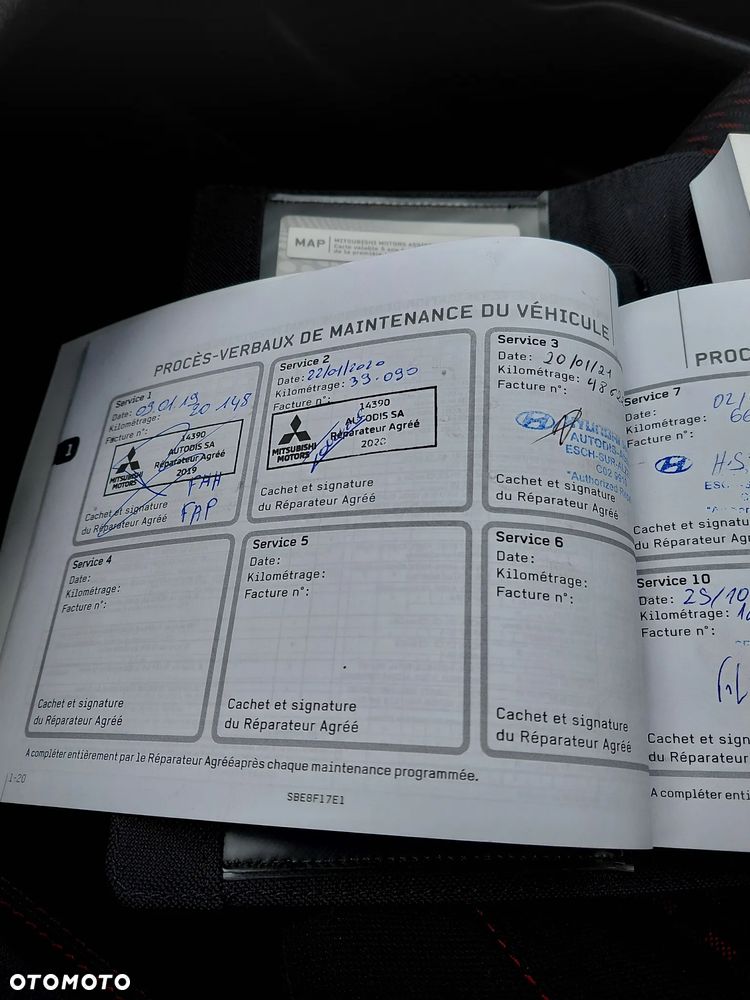 MAP MITSUBISHI MOTORS
Carte valable 5 ans
de la première
PROCÈS-VERBAUX DE MAINTENANCE DU VÉHICULE
Service 1
Date: 09.01.19
Kilométrage: 20 148
Facture n°:
14390
AUTODIS SA
Réparateur Agréé
2019
MITSUBISHI
MOTORS
FAH
FAP
Cachet et signature
du Réparateur Agréé
Service 2
Date: 22/01/2020
Kilométrage: 39.090
Facture n°:
14390
AUTODIS SA
Réparateur Agréé
2020
MITSUBISHI
MOTORS
Cachet et signature
du Réparateur Agréé
Service 3
Date: 20/01/21
Kilométrage: 48
Facture n°:
HYUNDAI
AUTODIS
ESCH-SUR-AL
"Authorized
Cachet et signature
du Réparateur Agréé
Service 4
Date:
Kilométrage:
Facture n°:
Cachet et signature
du Réparateur Agréé
Service 5
Date:
Kilométrage:
Facture n°:
Cachet et signature
du Réparateur Agréé
Service 6
Date:
Kilométrage:
Facture n°:
Cachet et signature
du Réparateur Agréé
A compléter entièrement par le Réparateur Agrééaprès chaque maintenance programmée.
1-20
SBE8F17E1
PROC
Service 7
Date: 02/
Kilométrage: 66
Facture n°:
Cachet et signatu
du Réparateur Ag
Service 10
Date: 25/10
Kilométrage:
Facture n°:
Cachet et sign
du Réparateur
A compléter enti
OTOMOTO